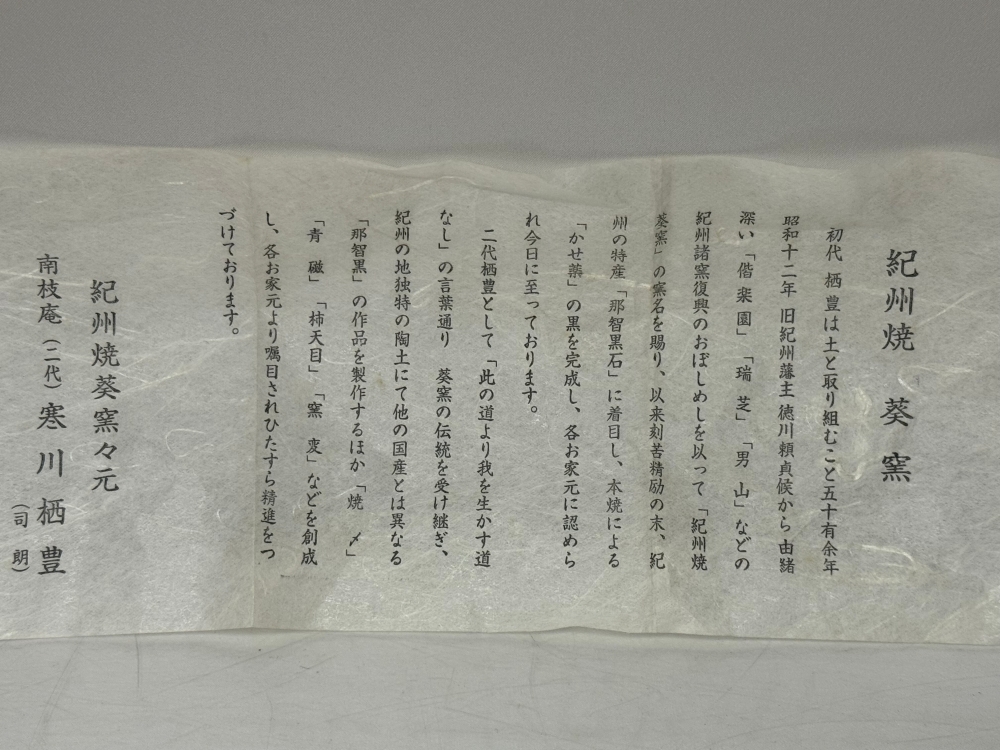 紀州焼 葵窯
初代 栖豊は土と取り組むこと五十有余年
昭和十二年 旧紀州藩主 徳川頼貞候から由緒
深い「偕楽園」「瑞芝」「男山」などの
紀州諸窯復興のおぼしめしを以って「紀州焼
葵窯」の窯名を賜り、以来刻苦精励の末、紀
州の特産「那智黒石」に着目し、本焼による
「かせ薬」の黒を完成し、各お家元に認めら
れ今日に至っております。
二代栖豊として「此の道より我を生かす道
なし」の言葉通り 葵窯の伝統を受け継ぎ、
紀州の地独特の陶土にて他の国産とは異なる
「那智黒」の作品を製作するほか「焼〆」
「青磁」「柿天目」「窯変」などを創成
し、各お家元より嘱目されひたすら精進をつ
づけております。
紀州焼葵窯々元
南枝庵(二代)寒川栖豊
(司朗)